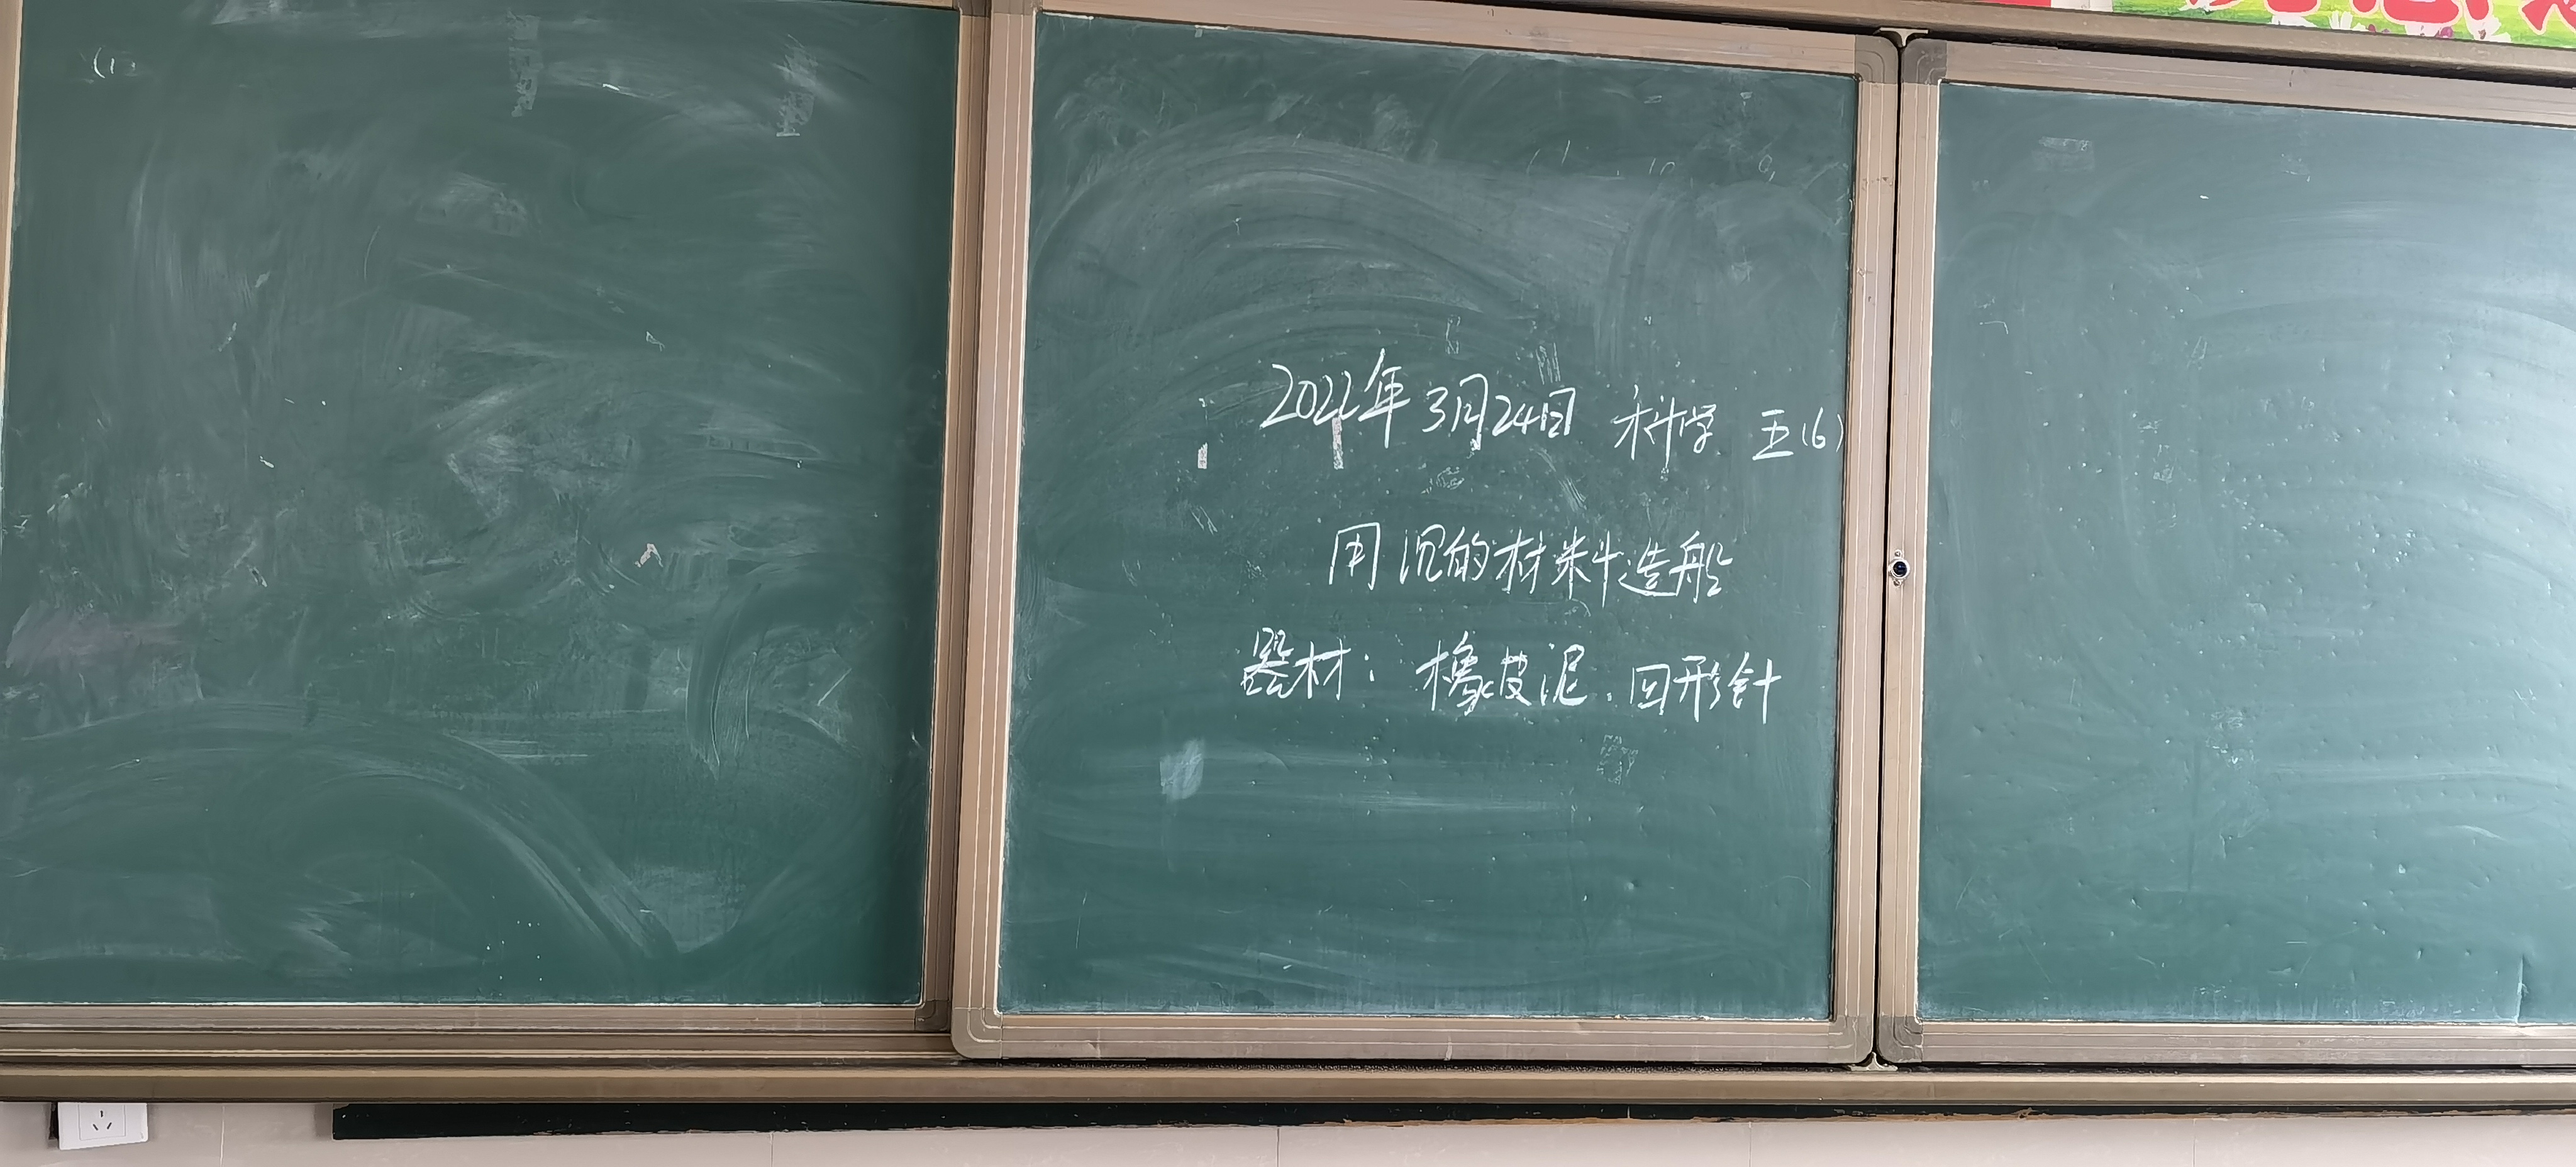 (1)
2022年3月24日 科学 五(6)
用沉的材料造船
器材：橡皮泥、回形针